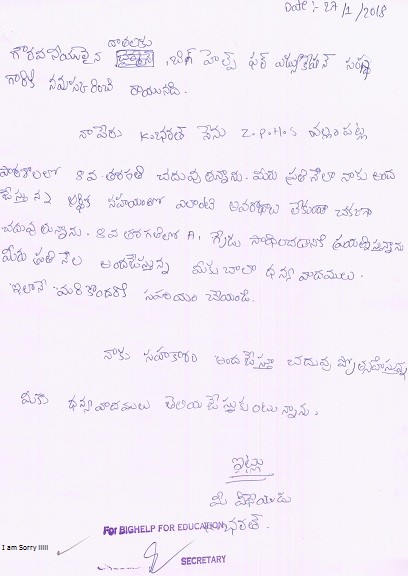 Date :- 27/1/2018
దాతలకు
గౌరవనీయులైన , బిగ్ హెల్ప్ ఫర్ ఎడ్యుకేషన్ సంస్థ
గారికి నమస్కరించి రాయునది.
నా పేరు K. భరత్ నేను Z.P.H.S పల్లంపట్ల
పాఠశాలలో 8వ తరగతి చదువుతున్నాను. మీరు ప్రతినెలా నాకు అంద
జేస్తున్న ఆర్థిక సహాయంతో ఎలాంటి అవరోధాలు లేకుండా చక్కగా
చదువుతున్నాను. 8వ తరగతిలో A1 గ్రేడు సాధించడానికి ప్రయత్నిస్తున్నాను
మీరు ప్రతి నెల అందజేస్తున్న మీకు చాలా ధన్యవాదములు.
ఇలానే మరికొందరికి సహాయం చేయండి.
నాకు సహకారం అందజేస్తూ చదువు ప్రోత్సహిస్తున్న
మీకు ధన్యవాదములు తెలియజేస్తుకుంటున్నాను.
ఇట్లు
మీ విధేయుడు
భరత్.
For BIGHELP FOR EDUCATION
I am Sorry !!!!!
SECRETARY